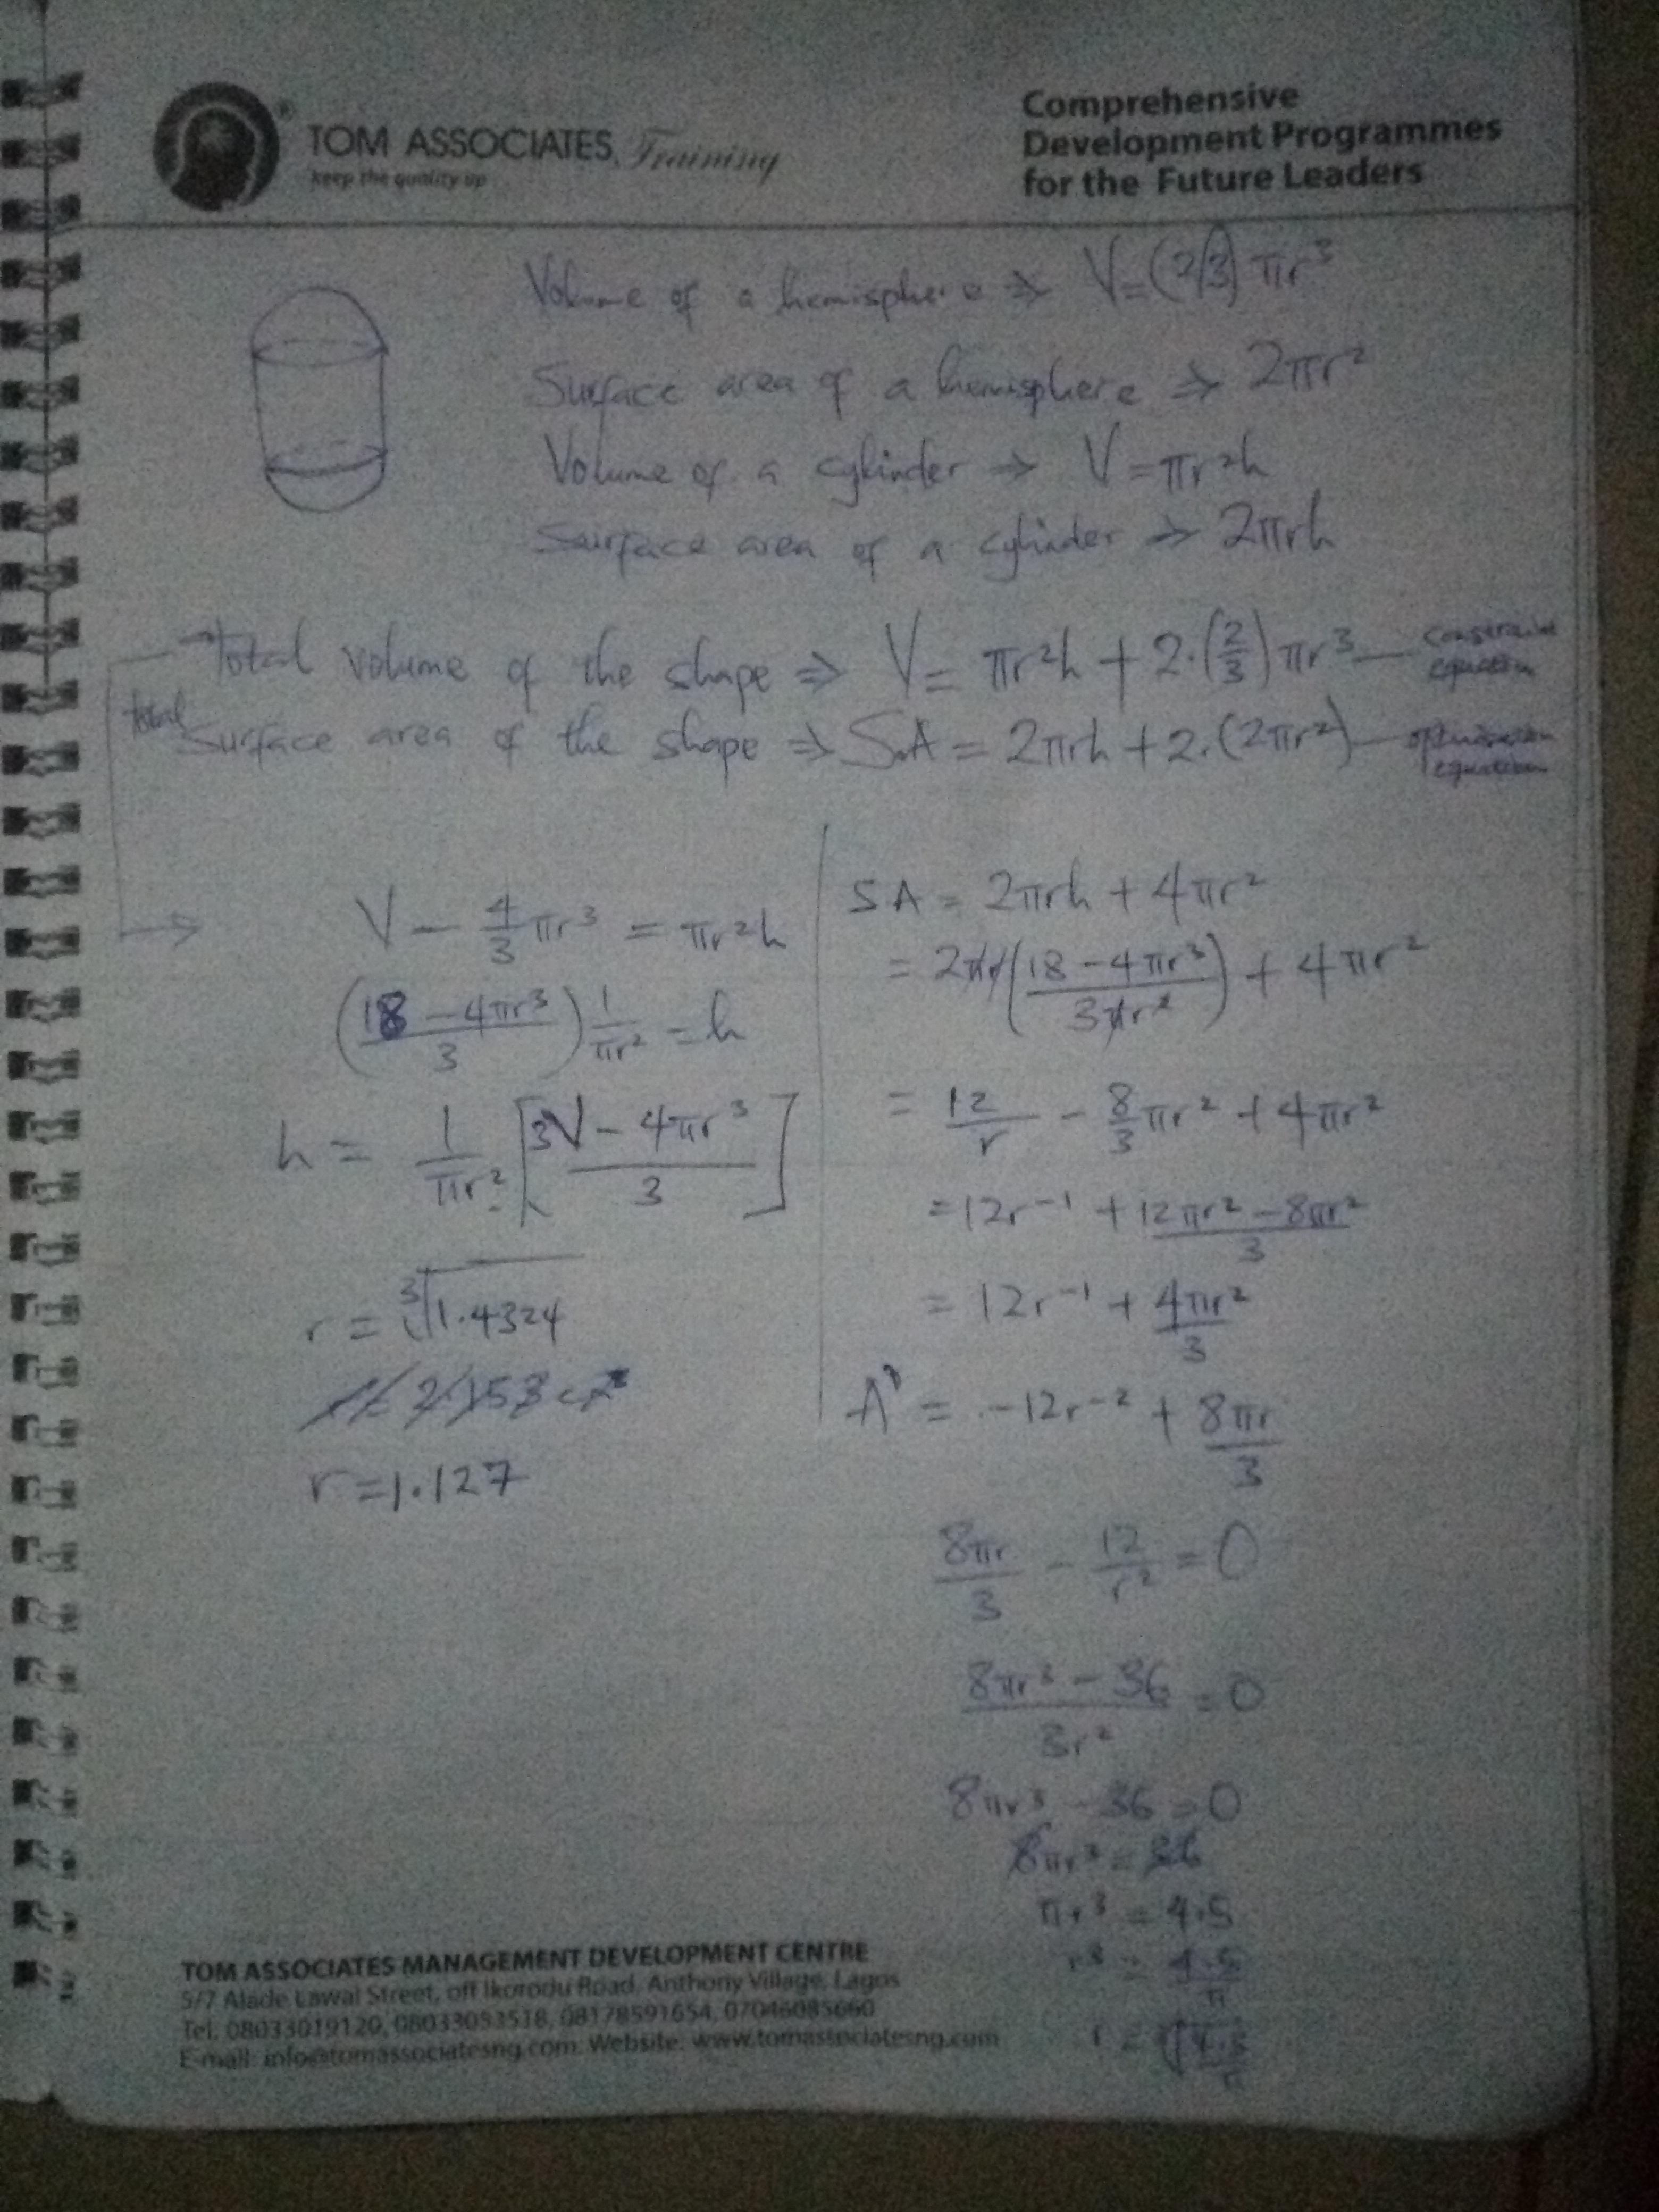 TOM ASSOCIATES, Training
keep the quality up
Comprehensive
Development Programmes
for the Future Leaders
Volume of a hemisphere ⇒ V=(2/3) πr³
Surface area of a hemisphere ⇒ 2πr²
Volume of a cylinder ⇒ V=πr²h
Surface area of a cylinder ⇒ 2πrh
Total volume of the shape ⇒ V= πr²h + 2·(2/3)πr³ — constraint equation
total Surface area of the shape ⇒ S.A = 2πrh + 2.(2πr²) — optimization equation
V − 4/3 πr³ = πr²h
((18 − 4πr³)/3) 1/πr² = h
h = 1/πr² [(3V − 4πr³)/3]
r = ∛1.4324
r = 1.127
SA = 2πrh + 4πr²
= 2πr((18 − 4πr³)/3πr²) + 4πr²
= 12/r − 8/3 πr² + 4πr²
= 12r⁻¹ + (12πr² − 8πr²)/3
= 12r⁻¹ + 4πr²/3
A' = −12r⁻² + 8πr/3
8πr/3 − 12/r² = 0
(8πr³ − 36)/3r² = 0
8πr³ − 36 = 0
8πr³ = 36
πr³ = 4.5
r³ = 4.5/π
r = ∛4.5/π
TOM ASSOCIATES MANAGEMENT DEVELOPMENT CENTRE
5/7 Alade Lawal Street, off Ikorodu Road, Anthony Village, Lagos
Tel: 08033019120, 08033053518, 08178591654, 07046085660
E-mail: info@tomassociatesng.com. Website: www.tomassociatesng.com